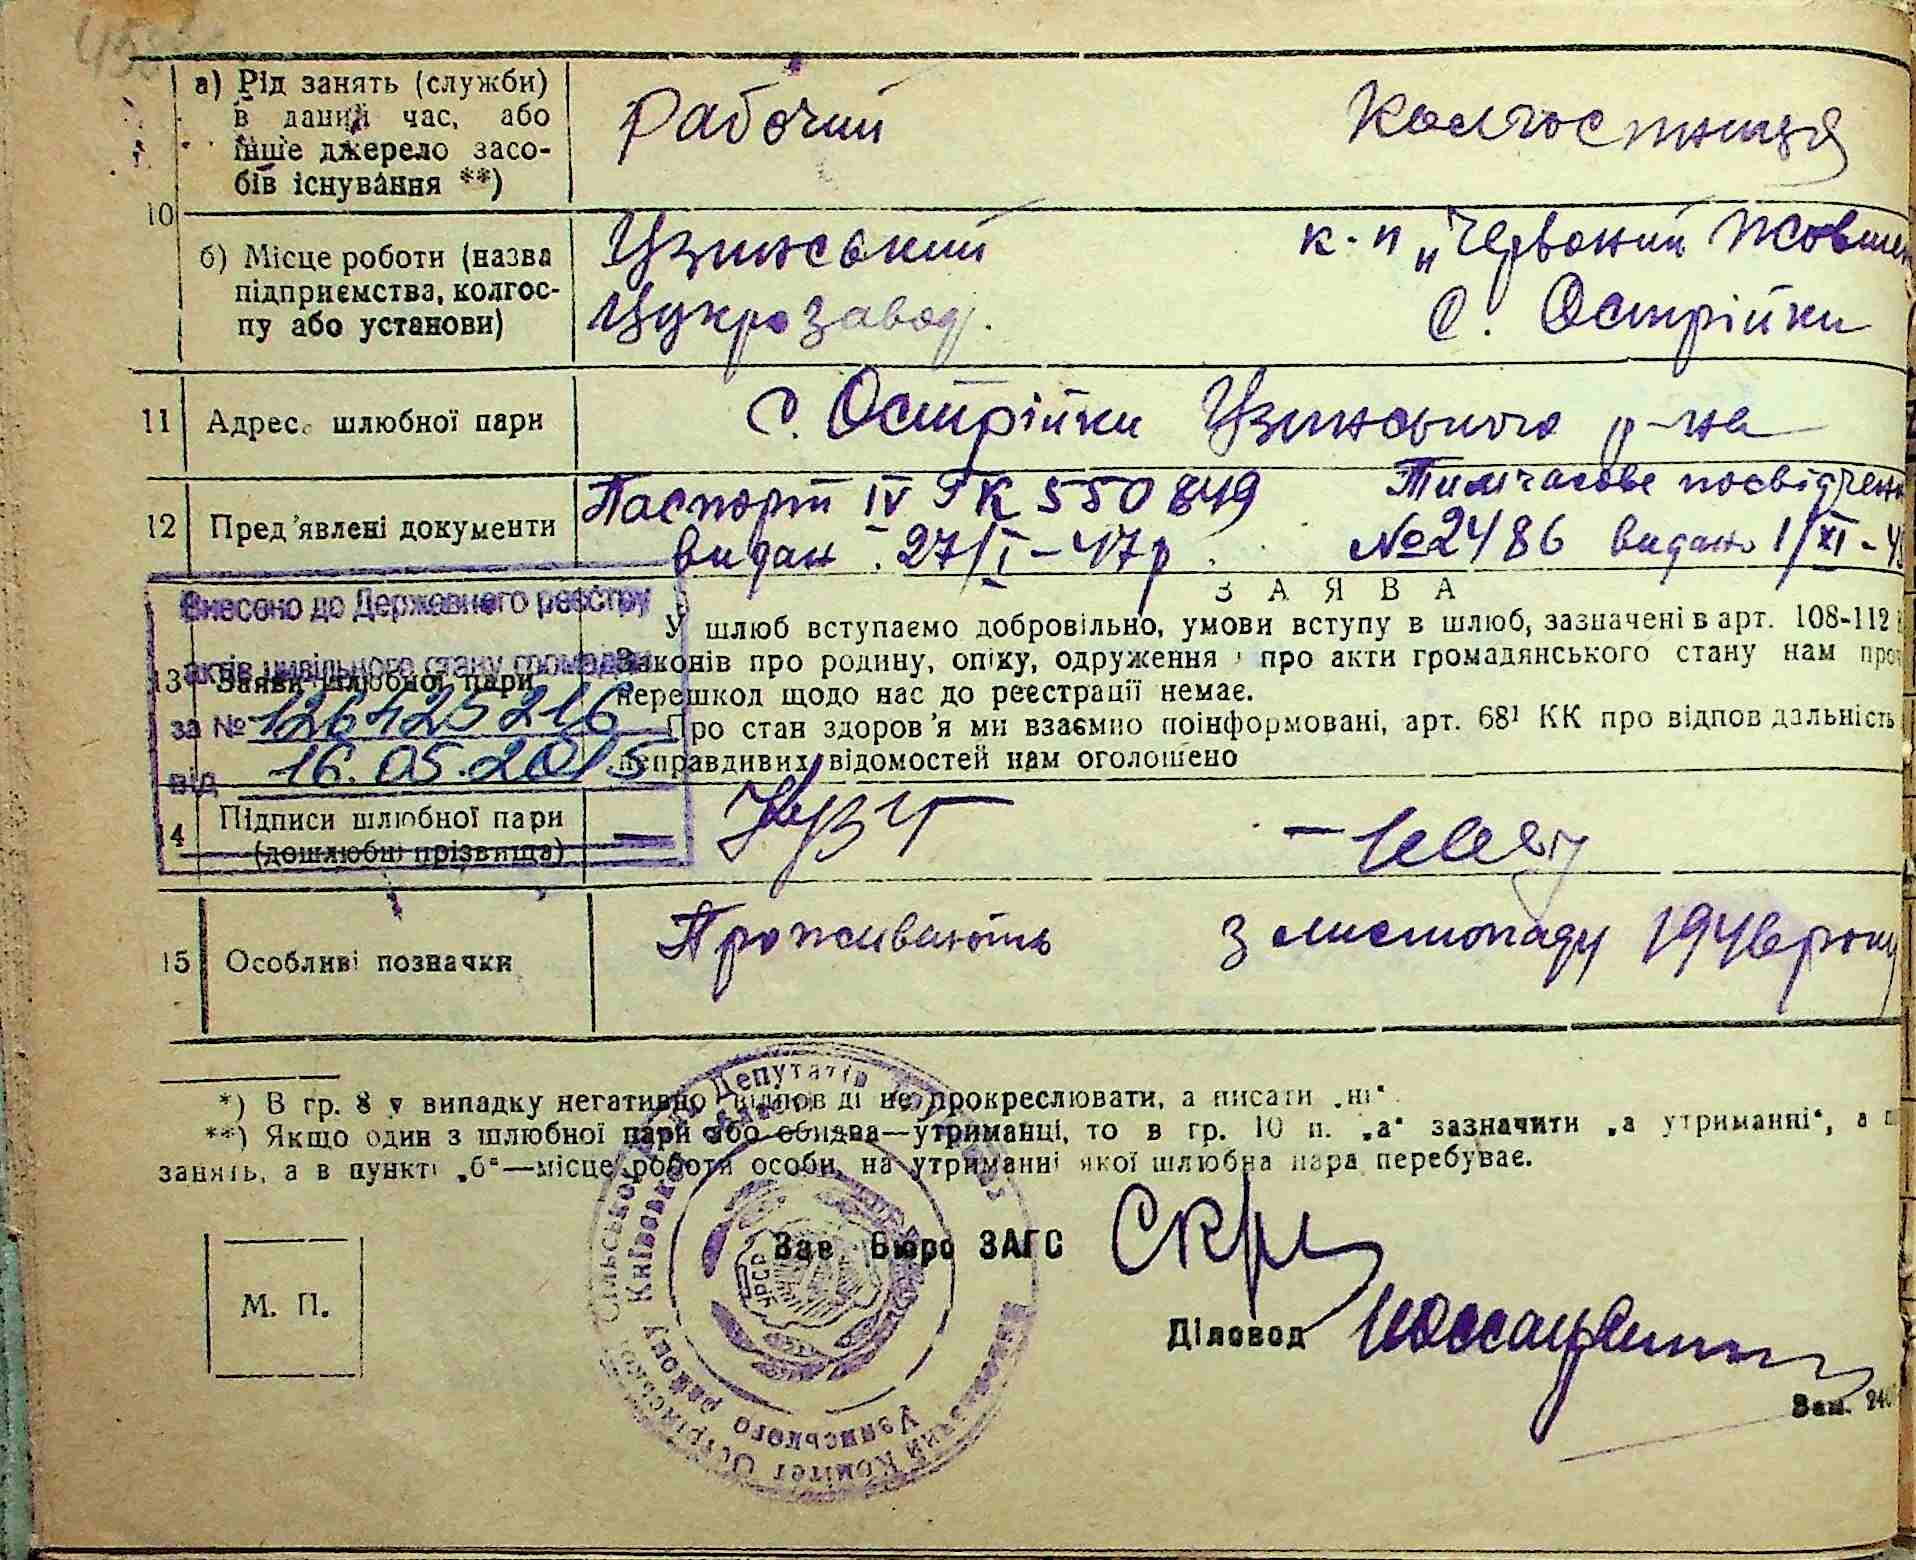 а) Рід занять (служби)
в даний час, або
інше джерело засо-
бів існування **)
Рабочий
Колгоспниця
10
б) Місце роботи (назва
підприємства, колгос-
пу або установи)
Узинський
Цукрозавод.
к-п „Червоний Жовтень
С. Острійки
11 Адрес шлюбної пари
с. Острійки Узинського р-на
12 Пред'явлені документи
Паспорт IV РК 550849
видан 27/I-47р.
Тимчасове посвідчен
№2486 видано 1/XI-4
Внесено до Державного реєстру
актів цивільного стану громадян
за № 126425216
від 16.05.2015
13 Заяви шлюбної пари
ЗАЯВА
У шлюб вступаємо добровільно, умови вступу в шлюб, зазначені в арт. 108-112
Законів про родину, опіку, одруження і про акти громадянського стану нам про
перешкод щодо нас до реєстрації немає.
Про стан здоров'я ми взаємно поінформовані, арт. 68¹ КК про відповідальність
неправдивих відомостей нам оголошено
14 Підписи шлюбної пари
(дошлюбні прізвища)
15 Особливі позначки
Проживають з листопаду 1946 року
*) В гр. 8 у випадку негативно відповіді не прокреслювати, а писати „ні“.
**) Якщо один з шлюбної пари або обидва—утриманці, то в гр. 10 п. „а“ зазначити „а утриманні“, а
занять, а в пункті „б“—місце роботи особи, на утриманні якої шлюбна пара перебуває.
М. П.
Зав. Бюро ЗАГС
Діловод
Зам. 24
Виконавчий Комітет Острійської Сільської Ради Депутатів
Узинського району Київської області
УРСР